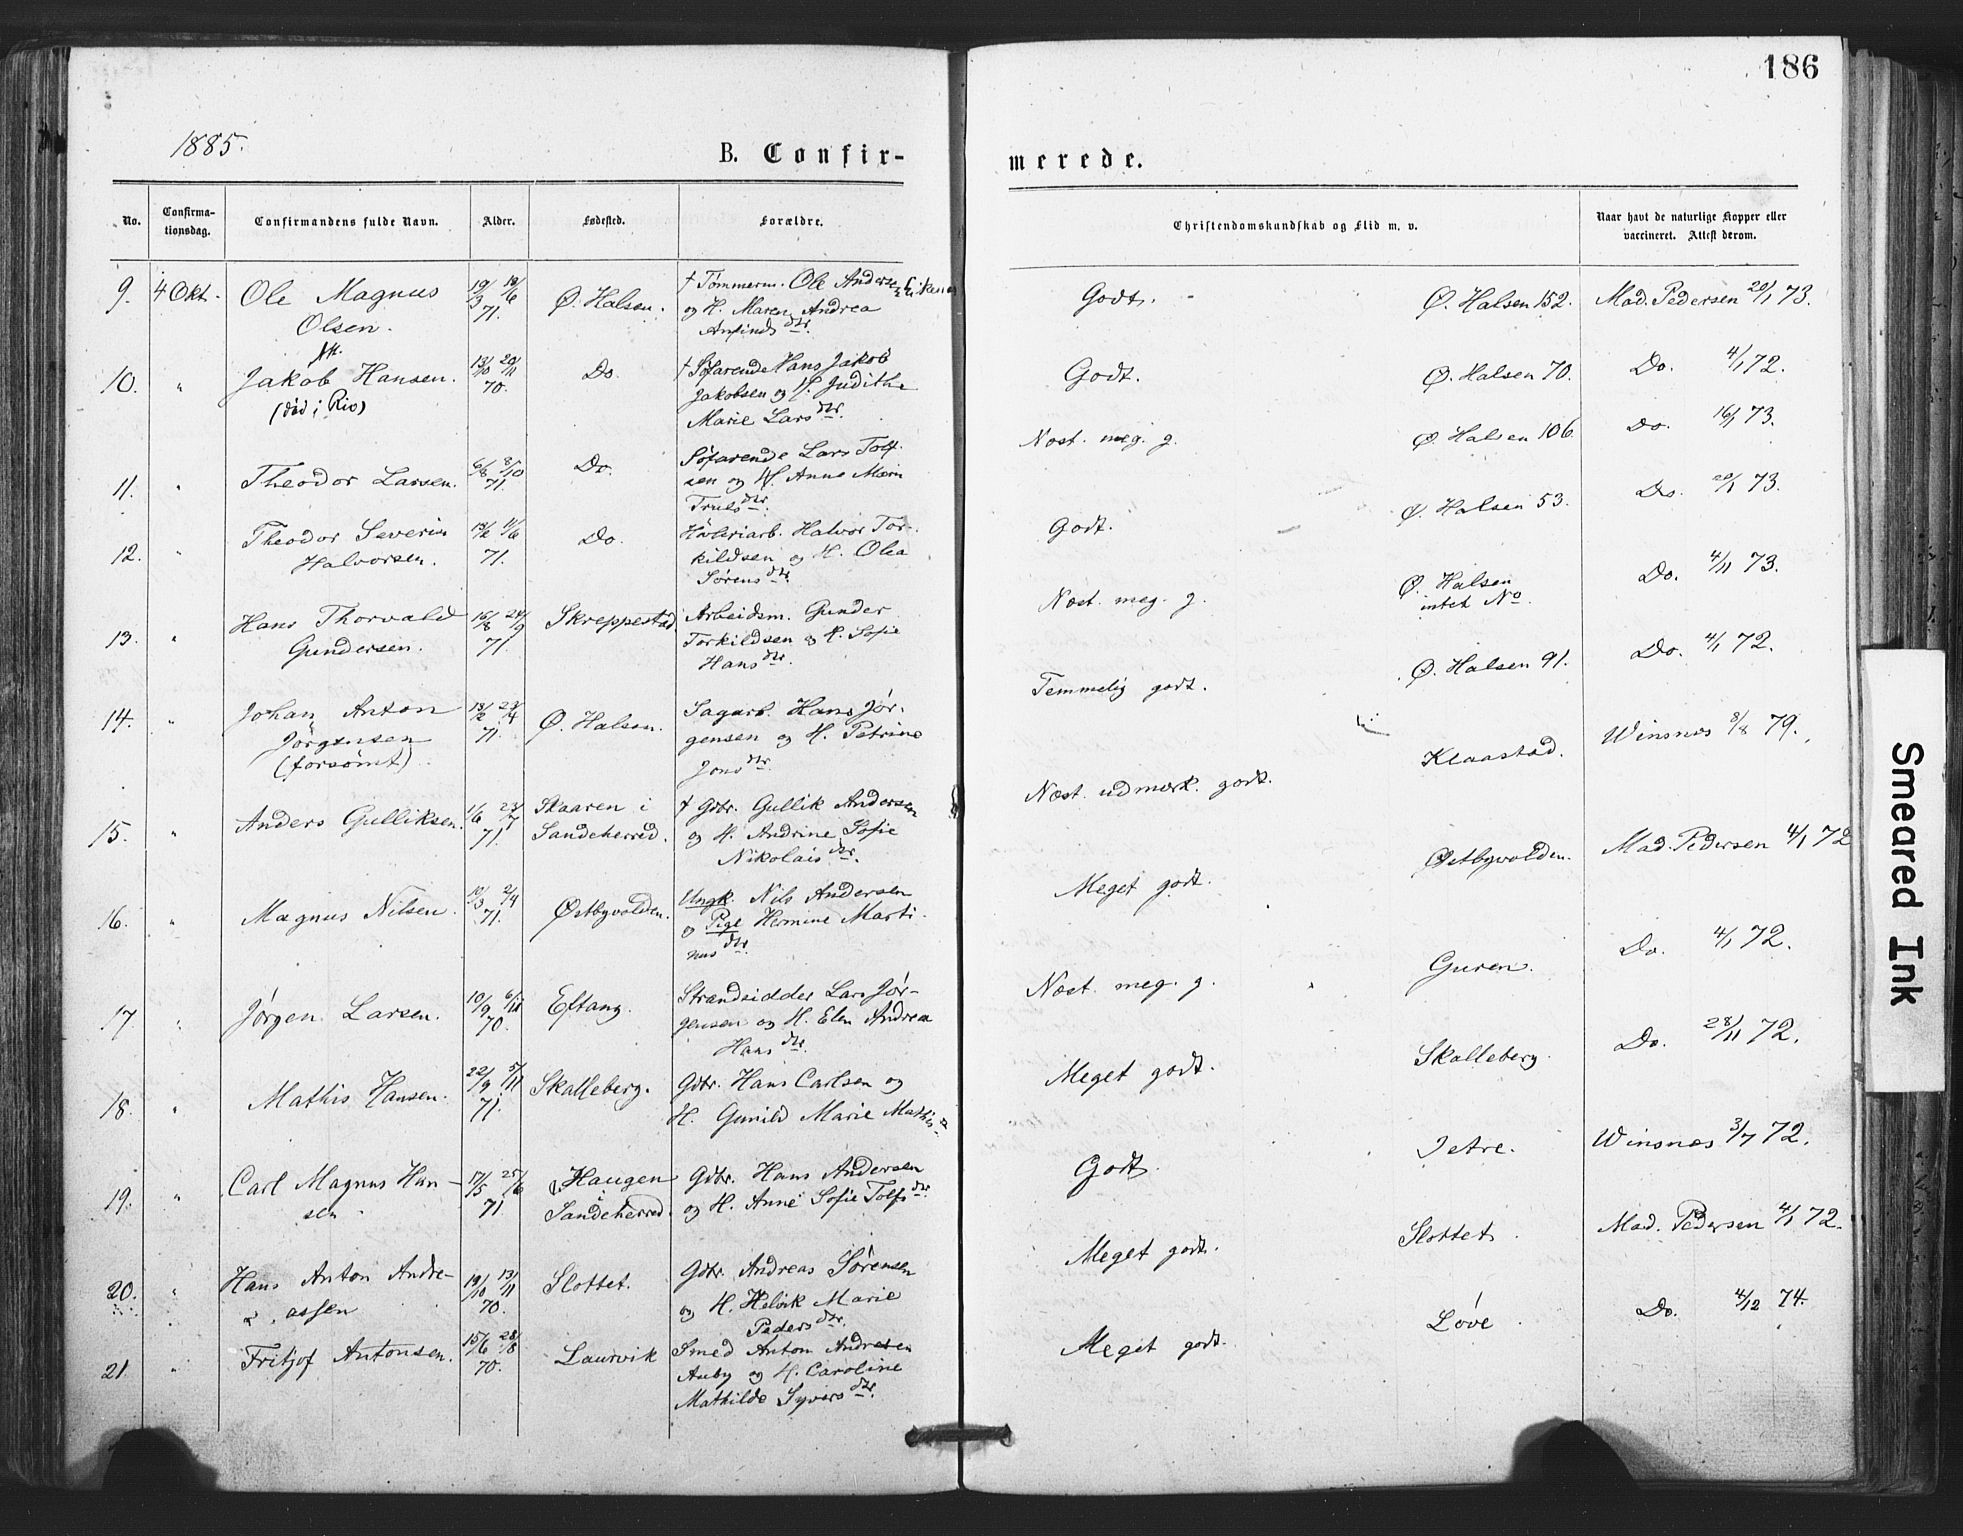 186
1885.
B. Confir-
merede.
No.
Confirma-
tionsdag.
Confirmandens fulde Navn.
Alder.
Fødested.
Forældre.
Christendomskundskab og Flid m. v.
Naar havt de naturlige Kopper eller
vaccineret. Attest derom.
9. 4 Okt. Ole Magnus
Olsen.
71.
Ø. Halsen.
† Tømmerm. Ole Andersen
og H. Maren Andrea
Anfinds dtr.
Godt.
Ø. Halsen 152.
Mad. Pedersen 20/1 73.
10. "
Jakob Hansen.
(død i Rio)
13/10 20/11
70.
Do.
† Søfarende Hans Jakob
Jakobsen og H. Judithe
Marie Lars dtr.
Godt.
Ø. Halsen 70.
Do. 4/1 72.
11. "
Theodor Larsen.
6/8 8/10
71.
Do.
Søfarende Lars Tolf-
sen og H. Anne Marie
Truls dtr.
Nost. meg. g.
Ø. Halsen 106.
Do. 16/1 73.
12. "
Theodor Severin
Halvorsen.
71.
Do.
Halvor Tor-
kildsen og H. Olea
Sørens dtr.
Godt.
Ø. Halsen 53.
Do. 20/1 73.
13. "
Hans Thorvald
Gundersen.
16/8 24/9
71.
Skreppestad
Arbeidsm. Gunder
Torkildsen og H. Sofie
Hans dtr.
Nost. meg. g.
Ø. Halsen
intet No.
Do. 4/11 73.
14. "
Johan Anton
Jörgensen
(forsømt)
13/2 23/4
71.
Ø. Halsen.
Sagarb. Hans Jør-
gensen og H. Petrine
Jons dtr.
Temmelig godt.
Ø. Halsen 91.
Do. 4/1 72.
15. "
Anders Gulliksen.
1/6 23/7
71.
Skaaren i
Sandeherred.
† Gdbr. Gullik Andersen
og H. Andrine Sofie
Nikolais dtr.
Nost. udmerk. godt.
Klaastad.
Winsnes 3/8 79.
16. "
Magnus Nilsen.
10/3 2/4
71.
Østbyvolden.
Ungk. Nils Andersen
og Pige Hermine Marti-
nus dtr.
Meget godt.
Østbyvolden.
Mad. Pedersen 4/1 72
17. "
Jørgen Larsen.
10/9 6/11
70.
Eftang.
Strandsidder Lars Jør-
gensen og H. Elen Andrea
Hans dtr.
Nost. meg. g.
Guren.
Do. 4/1 72.
18. "
Mathis Hansen.
22/9 5/11
71.
Skalleberg.
Gdbr. Hans Carlsen og
H. Gunild Marie Mathis
Meget godt.
Skalleberg.
Do. 28/11 72.
19. "
Carl Magnus Han-
sen
17/5 25/6
71
Haugen
i
Sandeherred.
Gdbr. Hans Andersen
og H. Anne Sofie Tolfs dtr.
Godt.
Istre.
Winsnes 3/7 72.
20. "
Hans Anton Andre-
assen
19/10 13/11
70.
Slottet.
Gdbr. Andreas Sørensen
og H. Helvik Marie
Peders dtr.
Meget godt.
Slottet.
Mad. Pedersen 4/1 72.
21. "
Fritjof Antonsen.
15/6 28/8
70.
Laurvik
Smed Anton Andresen
Auby og H. Caroline
Mathilde Syvers dtr.
Meget godt.
Løve
Do. 4/12 74.
Smeared Ink